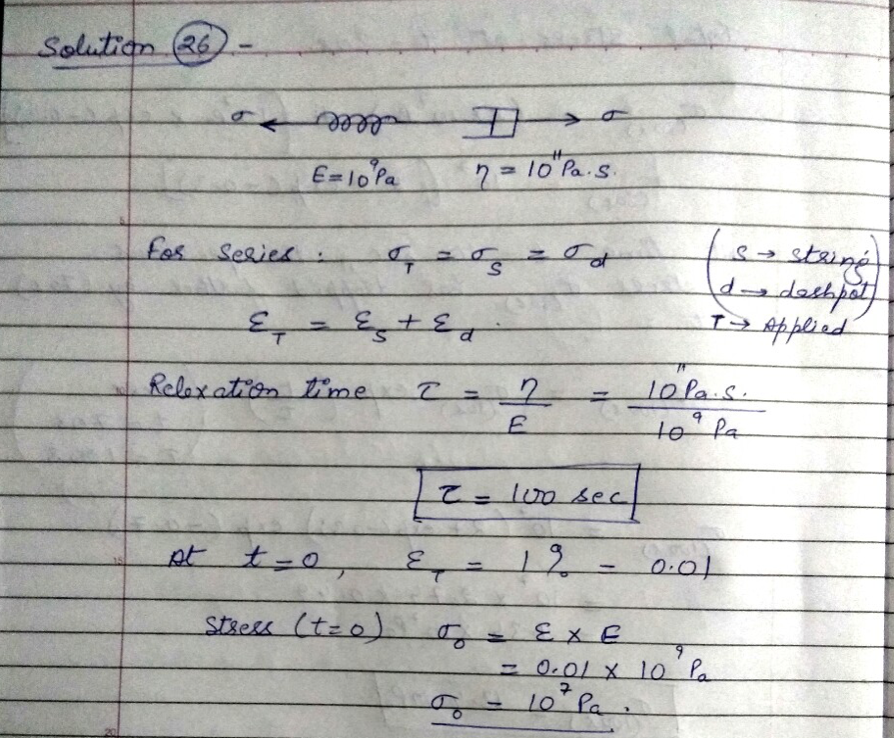 Solution (26) -
σ ← → σ
E = 10⁹ Pa η = 10¹¹ Pa.s.
For series : σ_T = σ_S = σ_d (S → string
d → dashpot)
ε_T = ε_S + ε_d . T → Applied
Relaxation time τ = η/E = 10¹¹ Pa.s. / 10⁹ Pa
τ = 100 sec
At t = 0 , ε_T = 1 % = 0.01
Stress (t=0) σ₀ = ε × E
= 0.01 × 10⁹ Pa
σ₀ = 10⁷ Pa .